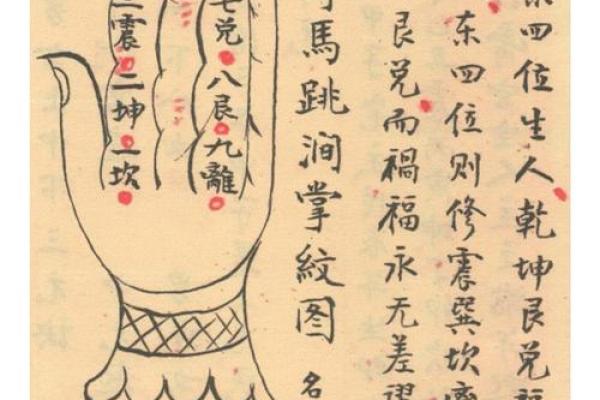 四位生人乾坤艮兌
东四位則修震巽坎
艮兌而禍福永无差
馬跳澗掌紋图 名
七兌八艮九離
三震二坤一坎